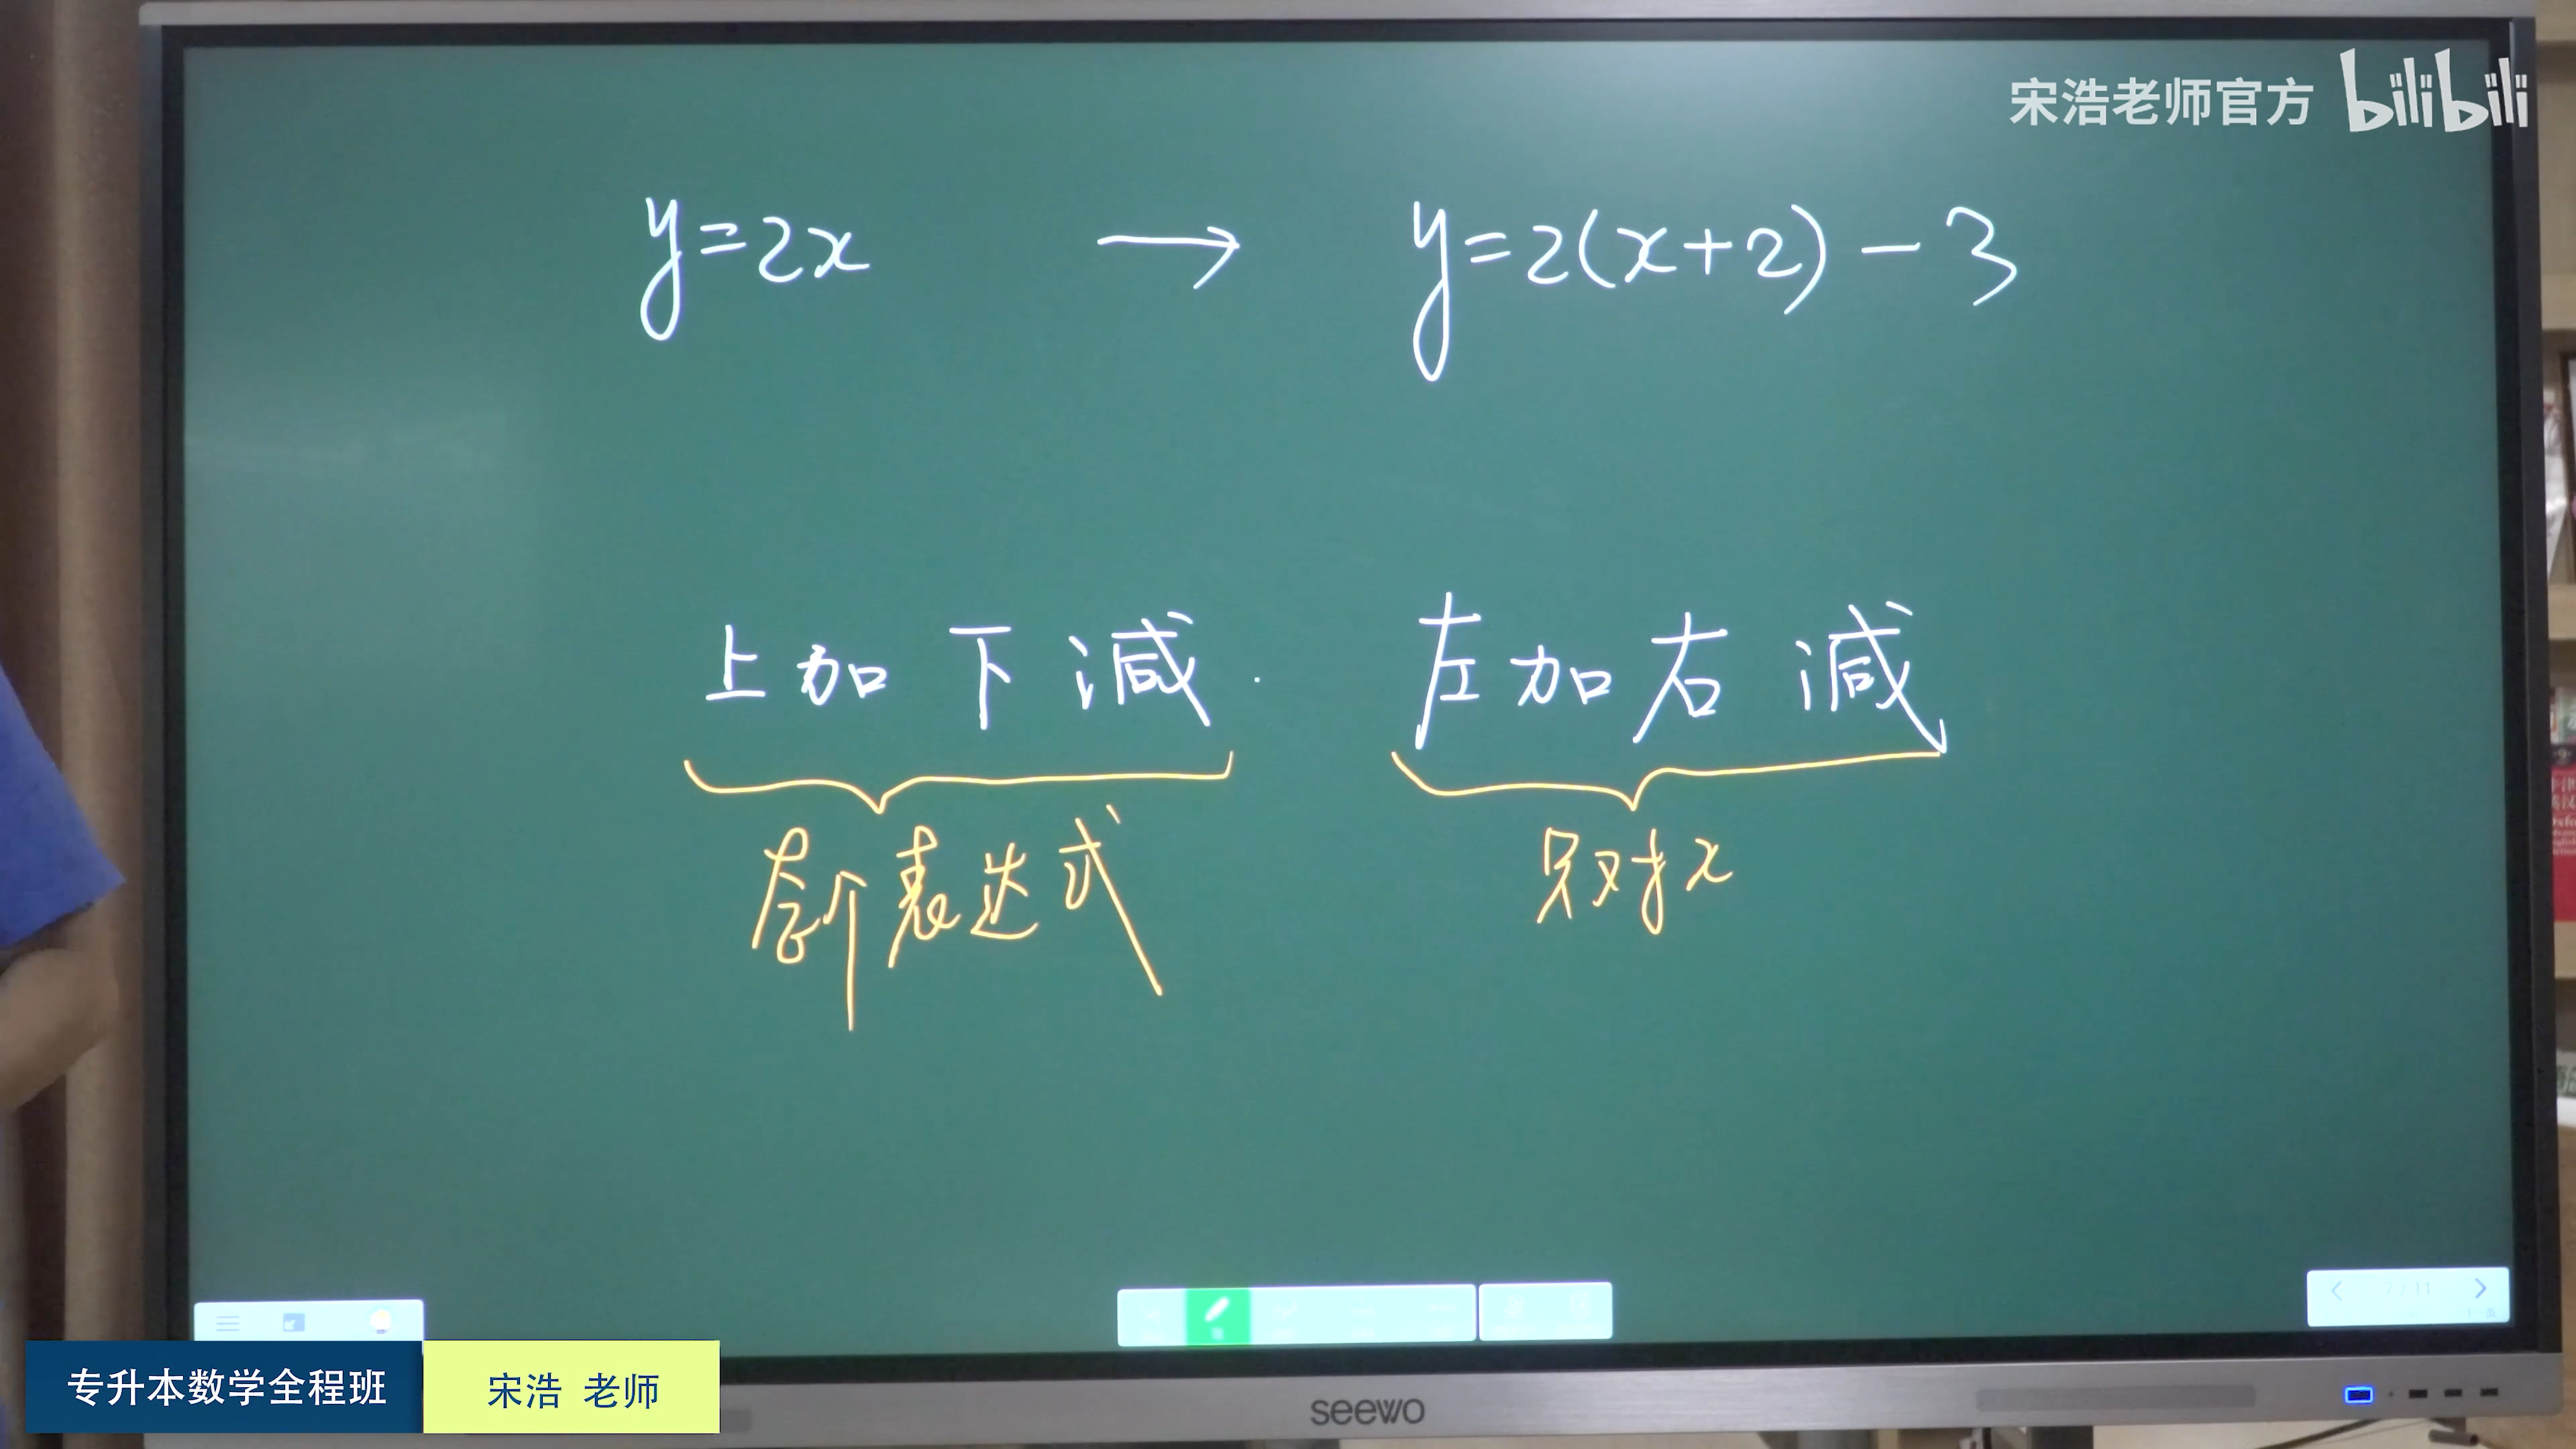 宋浩老师官方 bilibili
y=2x → y=2(x+2)-3
上加下减. 左加右减
整个表达式 只对x
7/11
专升本数学全程班 宋浩 老师
seewo